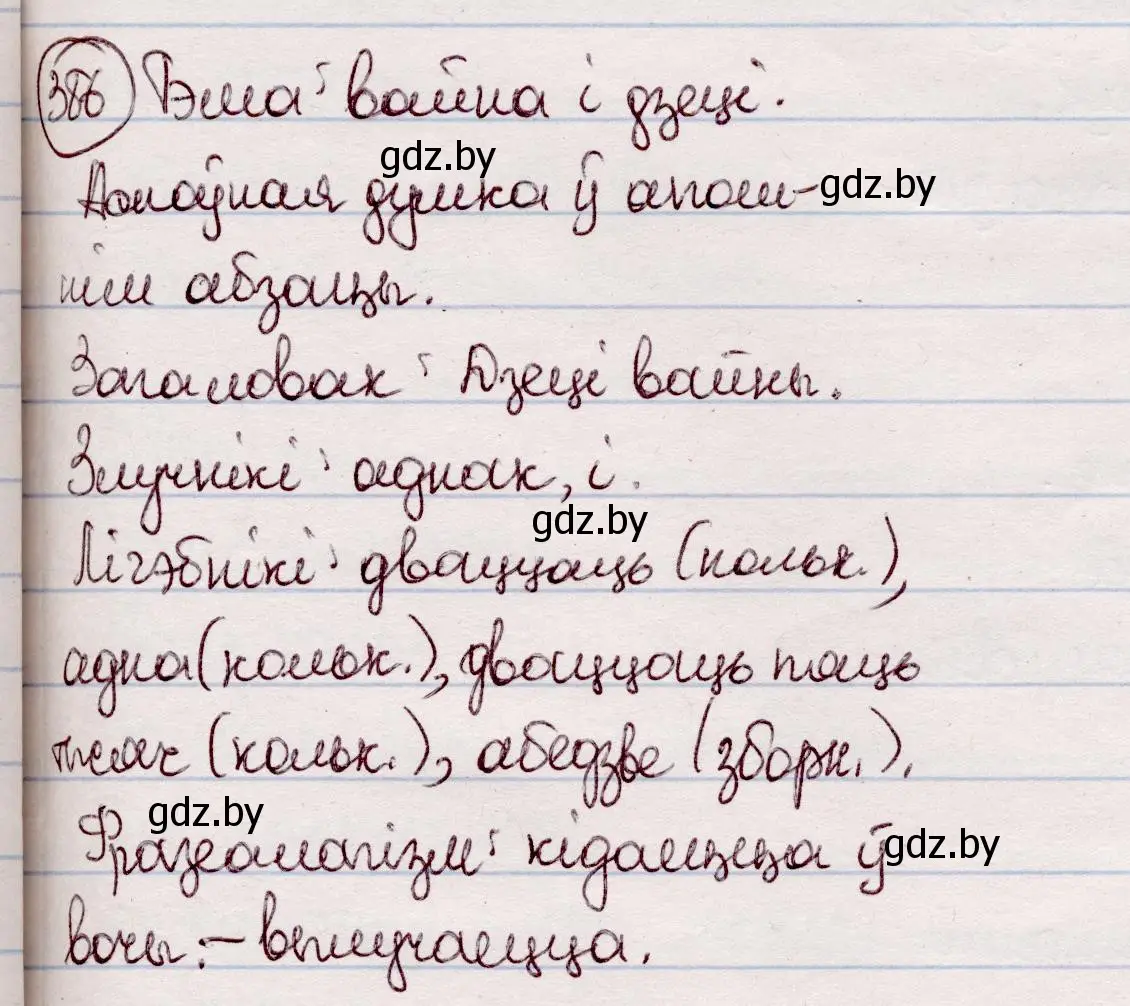 386 Тэма: вайна і дзеці.
gdz.by
Галоўная думка ў апош-
gdz.by
нім абзацы.
Загаловак: Дзеці вайны.
Злучнікі: аднак, і.
gdz.by
Лічэбнікі: дваццаць (кольк.),
адна (кольк.), дваццаць пяць
тысяч (кольк.), абедзве (зборн.).
gdz.by
Фразеалагізм: кідаецца ў
gdz.by
вочы. – вылучаецца.